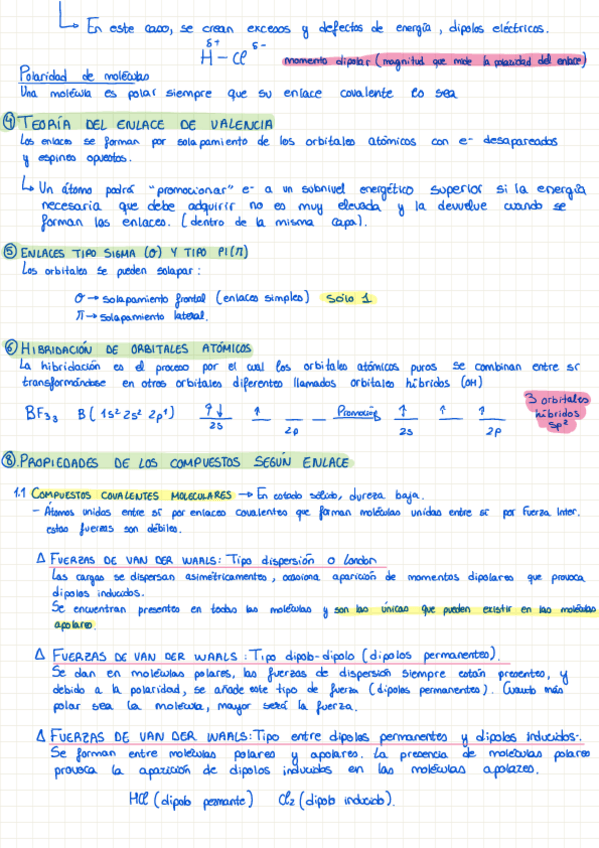 ↳ En este caso, se crean excesos y defectos de energía, dipolos eléctricos.
δ+ H - Cl δ- momento dipolar (magnitud que mide la polaridad del enlace)
Polaridad de moléculas
Una molécula es polar siempre que su enlace covalente lo sea
④ TEORÍA DEL ENLACE DE VALENCIA
Los enlaces se forman por solapamiento de los orbitales atómicos con e- desapareados
y espines opuestos.
↳ Un átomo podrá "promocionar" e- a un subnivel energético superior si la energía
necesaria que debe adquirir no es muy elevada y la devuelve cuando se
forman los enlaces. (dentro de la misma capa).
⑤ ENLACES TIPO SIGMA (σ) Y TIPO PI (π)
Los orbitales se pueden solapar:
σ → solapamiento frontal (enlaces simples) solo 1
π → solapamiento lateral.
⑥ HIBRIDACIÓN DE ORBITALES ATÓMICOS
La hibridación es el proceso por el cual los orbitales atómicos puros se combinan entre sí
transformándose en otros orbitales diferentes llamados orbitales híbridos (OH)
BF3 B (1s² 2s² 2p¹) ↑↓ ↑ Promoción ↑ ↑ ↑ 3 orbitales
2s 2p 2s 2p híbridos
sp²
⑧. PROPIEDADES DE LOS COMPUESTOS SEGÚN ENLACE
1.1 COMPUESTOS COVALENTES MOLECULARES → En estado sólido, dureza baja.
- Átomos unidos entre sí por enlaces covalentes que forman moléculas unidas entre sí por Fuerza Inter.
estas fuerzas son débiles.
Δ FUERZAS DE VAN DER WAALS: Tipo dispersión o London
Las cargas se dispersan asimétricamente, ocasiona aparición de momentos dipolares que provoca
dipolos inducidos.
Se encuentran presentes en todas las moléculas y son las únicas que pueden existir en las moléculas
apolares.
Δ FUERZAS DE VAN DER WAALS: Tipo dipolo-dipolo (dipolos permanentes).
Se dan en moléculas polares, las fuerzas de dispersión siempre están presentes, y
debido a la polaridad, se añade este tipo de fuerza (dipolos permanentes). Cuanto más
polar sea la molécula, mayor será la fuerza.
Δ FUERZAS DE VAN DER WAALS: Tipo entre dipolos permanentes y dipolos inducidos.
Se forman entre moléculas polares y apolares. La presencia de moléculas polares
provoca la aparición de dipolos inducidos en las moléculas apolares.
HCl (dipolo permante) Cl2 (dipolo inducido).